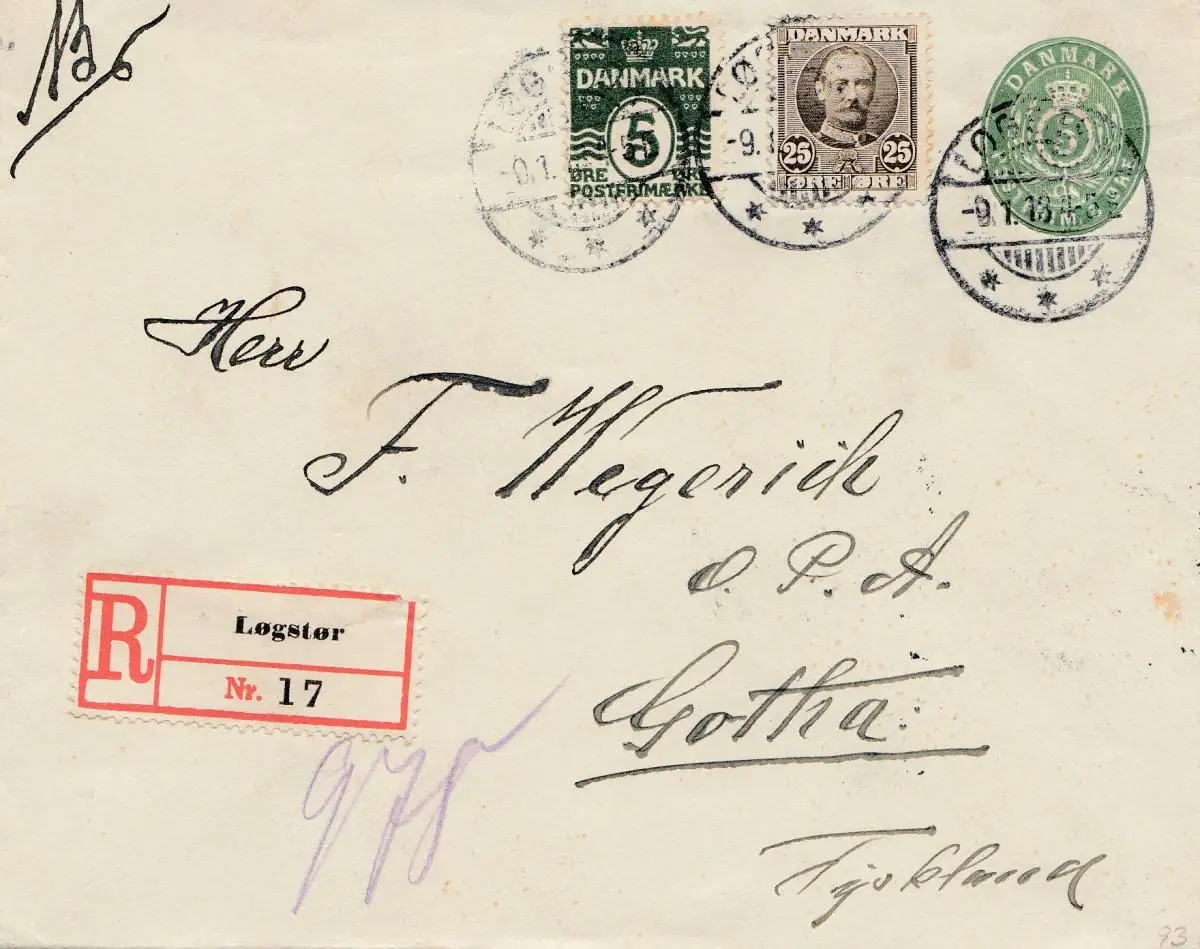 DANMARK
5
ØRE ØRE
POSTFRIMÆRKE
DANMARK
25 25
ØRE ØRE
DANMARK
5
LØGSTØR
-9.1.13
Herr
F. Wegerich
O. P. A.
Gotha.
Tyskland
R
Løgstør
Nr. 17
93